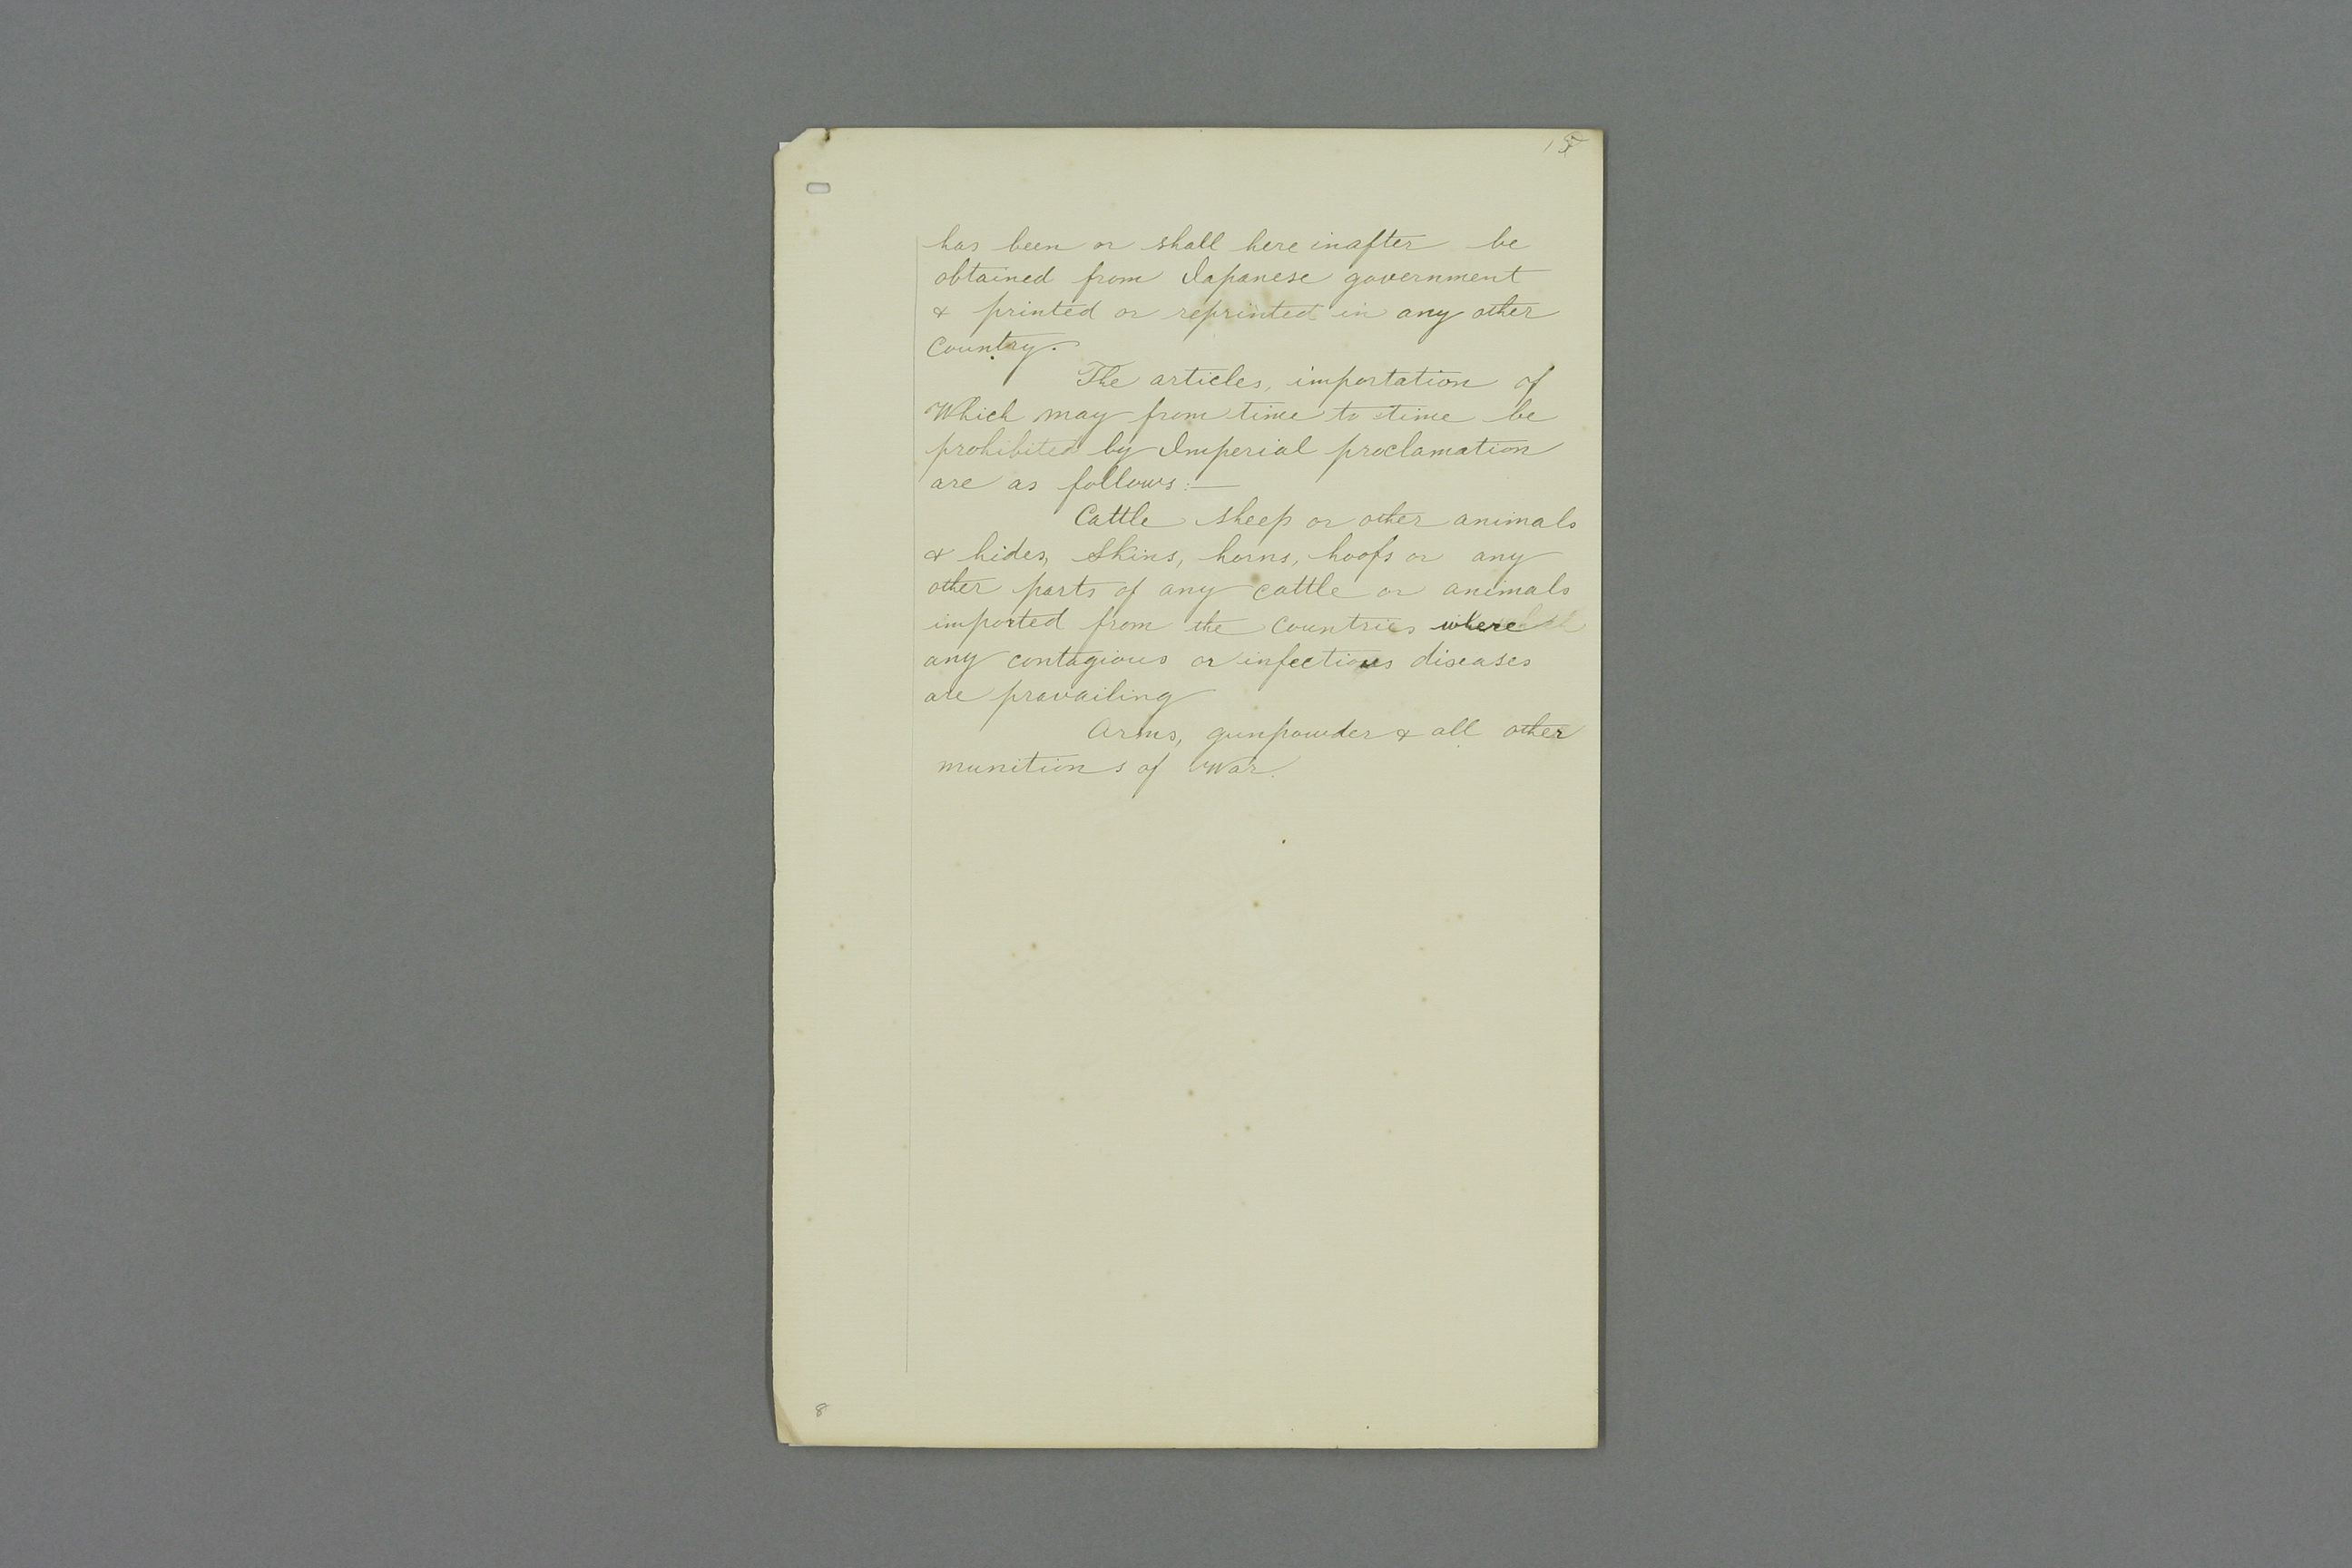 has been or shall here inafter be
obtained from Japanese government
& printed or reprinted in any other
Country.
The articles, importation of
Which may from time to time be
prohibited by Imperial proclamation
are as follows:—
Cattle sheep or other animals
& hides, Skins, horns, hoofs or any
other parts of any cattle or animals
imported from the Countries where
any contagious or infectious diseases
are pravailing
Arms, gunpowder & all other
munitions of War.
8